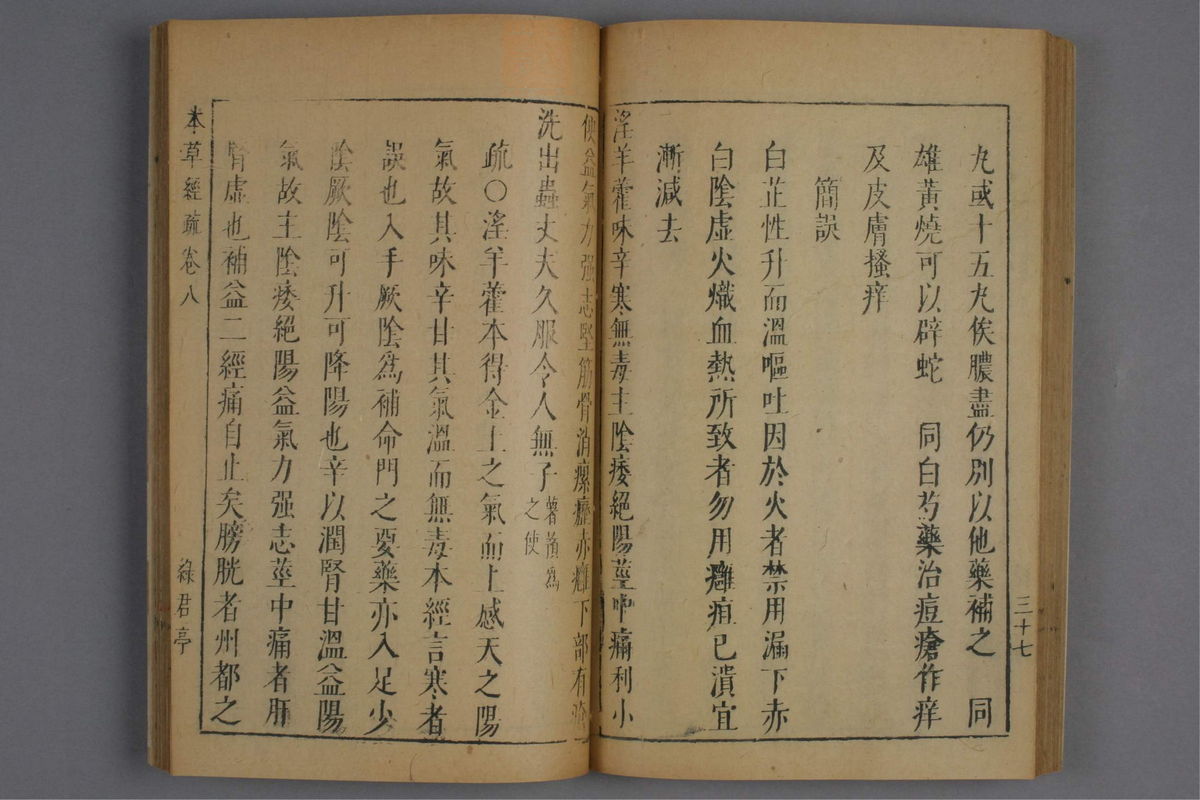 三十七
丸或十五丸俟膿盡仍別以他藥補之　同
雄黃燒可以辟蛇　同白芍藥治痘瘡作痒
及皮膚搔痒
簡誤
白芷性升而溫嘔吐因於火者禁用漏下赤
白陰虛火熾血熱所致者勿用癰疽已潰宜
漸減去
淫羊藿味辛寒無毒主陰痿絕陽莖中痛利小
便益氣力强志堅筋骨消瘰癧赤癰下部有瘡
洗出蟲丈夫久服令人無子薯蕷爲之使
疏○淫羊藿本得金土之氣而上感天之陽
氣故其味辛甘其氣溫而無毒本經言寒者
誤也入手厥陰爲補命門之要藥亦入足少
陰厥陰可升可降陽也辛以潤腎甘溫益陽
氣故主陰痿絕陽益氣力强志莖中痛者肝
腎虛也補益二經痛自止矣膀胱者州都之
本草經疏卷八
綠君亭